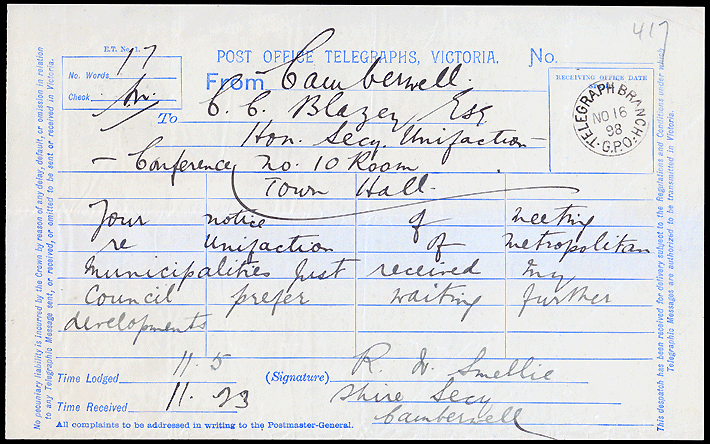 417
E.T. No. 1.
No. Words 17
Check
POST OFFICE TELEGRAPHS, VICTORIA. No.
From Camberwell.
RECEIVING OFFICE DATE
TELEGRAPH BRANCH
NO 16
98
G.P.O.
To C. C. Blazey Esq
Hon. Secy. Unifaction
Conference, no. 10 Room
Town Hall.
Your notice of meeting
re Unifaction of Metropolitan
Municipalities just received my
Council prefer waiting further
developments
Time Lodged 11.5
(Signature) R. W. Smellie
Time Received 11.23
Shire Secy
Camberwell
All complaints to be addressed in writing to the Postmaster-General.
No pecuniary liability is incurred by the Crown by reason of any delay, default, or omission in relation
to any Telegraphic Message sent, or received, or omitted to be sent or received in Victoria.
This despatch has been received for delivery subject to the Regulations and Conditions under which
Telegraphic Messages are authorized to be transmitted in Victoria.